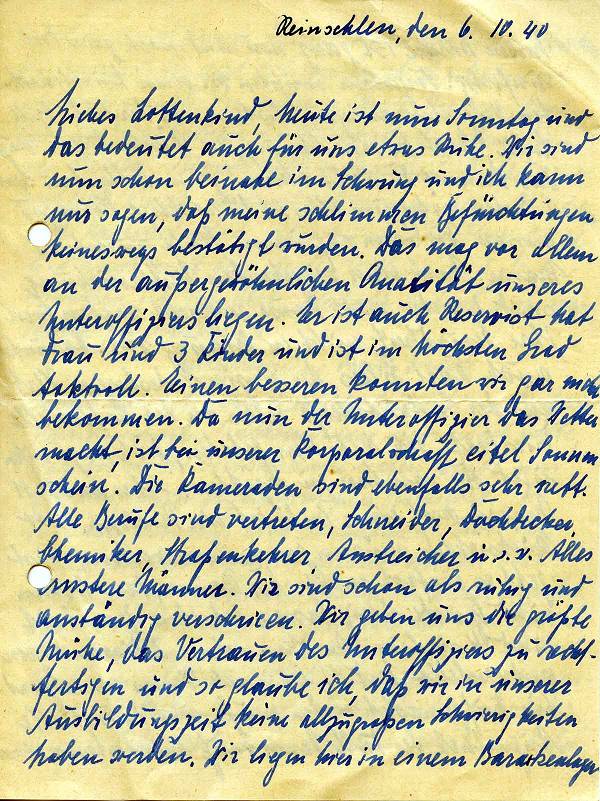 Reinsehlen, den 6. 10. 40
Liebes Lottenkind, heute ist nun Sonntag und
das bedeutet auch für uns etwas Ruhe. Wir sind
nun schon beinahe im Schwung und ich kann
nur sagen, daß meine schlimmen Befürchtungen
keineswegs bestätigt wurden. Das mag vor allem
an der außergewöhnlichen Qualität unseres
Unteroffiziers liegen. Er ist auch Reservist hat
Frau und 3 Kinder und ist im höchsten Grad
taktvoll. Einen besseren konnten wir gar nicht
bekommen. Da nun der Unteroffizier das Wetter
macht, ist bei unserer Korporalschaft eitel Sonnen
schein. Die Kameraden sind ebenfalls sehr nett.
Alle Berufe sind vertreten, Schneider, Dachdecker,
Chemiker, Straßenkehrer Anstreicher u.s.w. Alles
ernstere Männer. Wir sind schon als ruhig und
anständig verschrieen. Wir geben uns die größte
Mühe, das Vertrauen des Unteroffiziers zu recht-
fertigen und so glaube ich, daß wir in unserer
Ausbildungszeit keine allzugroßen Schwierigkeiten
haben werden. Wir liegen hier in einem Barackenlager